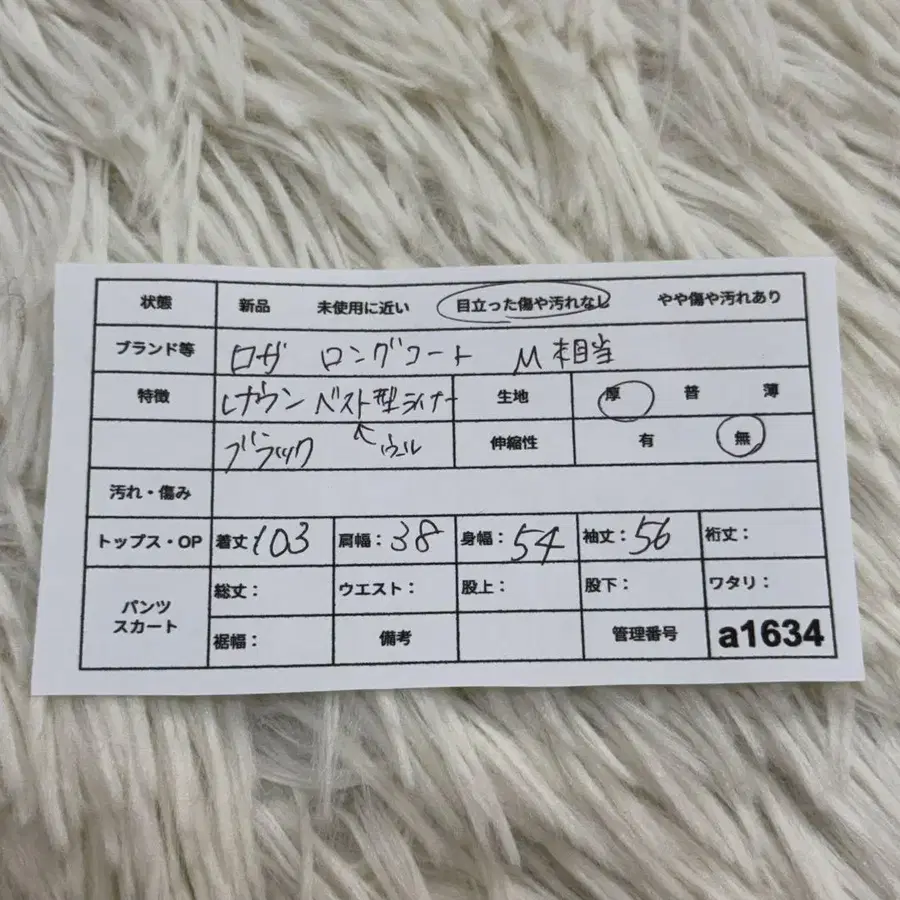 状態 新品 未使用に近い 目立った傷や汚れなし やや傷や汚れあり
ブランド等 ロザ ロングコート M相当
特徴 レナウン ベスト型ライナー 生地 厚 普 薄
ブラック ウール 伸縮性 有 無
汚れ・傷み
トップス・OP 着丈103 肩幅:38 身幅:54 袖丈:56 裄丈:
パンツ スカート 総丈: ウエスト: 股上: 股下: ワタリ:
裾幅: 備考 管理番号 a1634